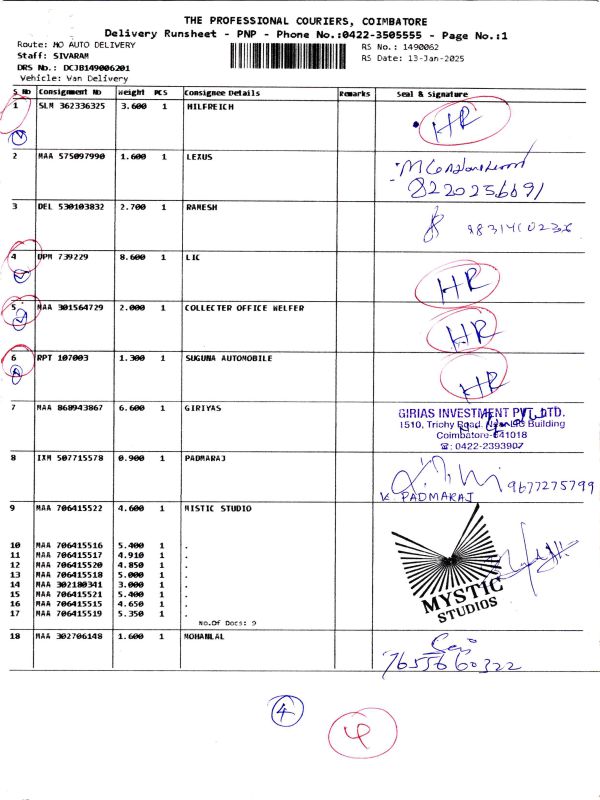 THE PROFESSIONAL COURIERS, COIMBATORE
Delivery Runsheet - PNP - Phone No.:0422-3505555 - Page No.:1
Route: MO AUTO DELIVERY
RS No.: 1490062
Staff: SIVARAM
RS Date: 13-Jan-2025
DRS No.: DCJB149006201
Vehicle: Van Delivery
S No Consignment No Weight PCS Consignee Details Remarks Seal & Signature
1 SLM 362336325 3.600 1 HILFREICH HR
2 MAA 575097990 1.600 1 LEXUS
8220256691
3 DEL 530103832 2.700 1 RAMESH
4 UPM 739229 8.600 1 LIC HR
5 MAA 301564729 2.000 1 COLLECTER OFFICE WELFER HR
6 RPT 107003 1.300 1 SUGUNA AUTOMOBILE HR
7 MAA 868943867 6.600 1 GIRIYAS GIRIAS INVESTMENT PVT. LTD.
1510, Trichy Road, Near LIC Building
Coimbatore-641018
☎: 0422-2393907
8 IXM 507715578 0.900 1 PADMARAJ 9677275799
K PADMARAJ
9 MAA 706415522 4.600 1 MISTIC STUDIO
10 MAA 706415516 5.400 1 .
11 MAA 706415517 4.910 1 .
12 MAA 706415520 4.850 1 .
13 MAA 706415518 5.000 1 .
14 MAA 302180341 3.000 1 .
15 MAA 706415521 5.400 1 .
16 MAA 706415515 4.650 1 .
17 MAA 706415519 5.350 1 .
MYSTIC
STUDIOS
No.Of Docs: 9
18 MAA 302706148 1.600 1 MOHANLAL
7655660322
4
4